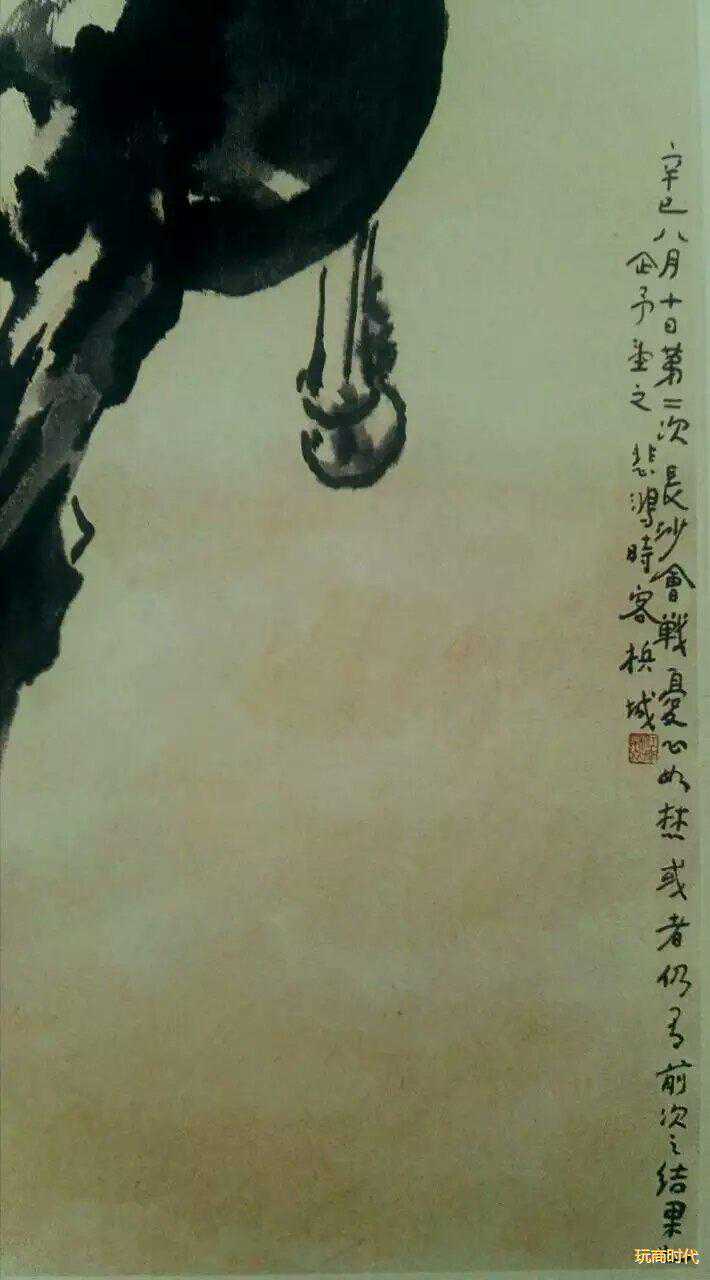 辛巳八月十日第二次長沙會戰憂心如焚或者仍有前次之結果也
企予望之 悲鴻時客檳城
玩商时代